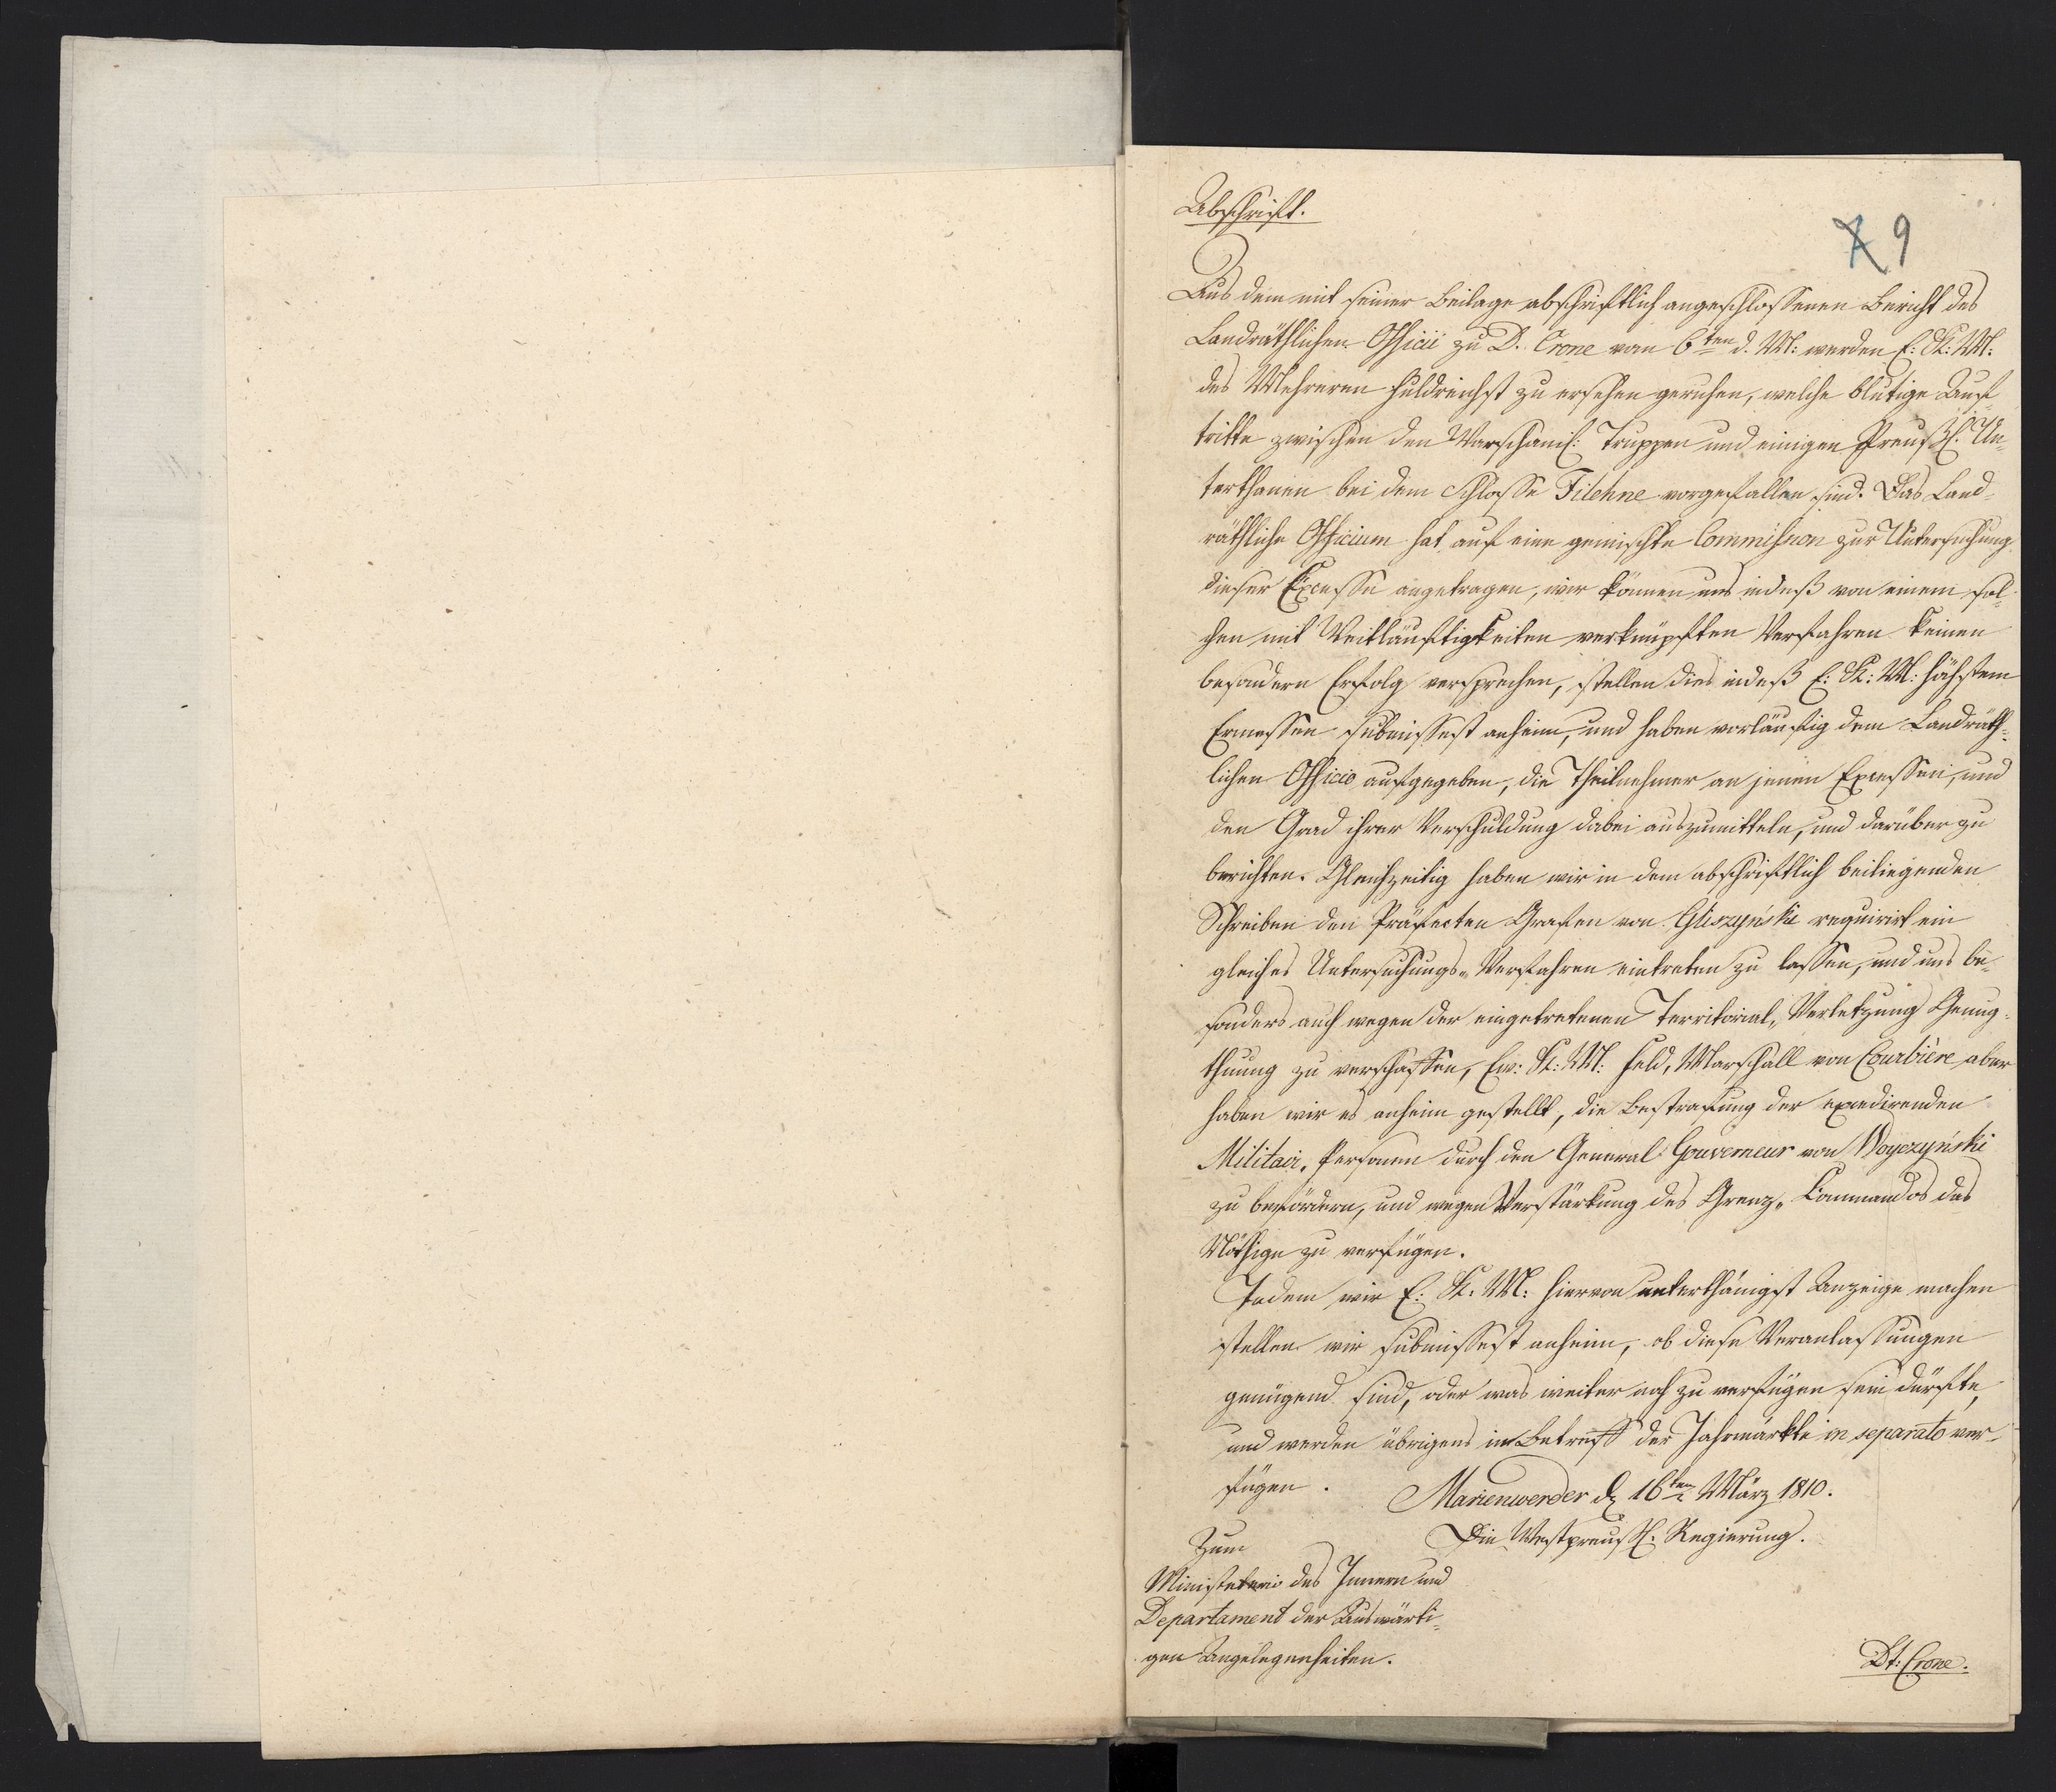 Abschrift.
7 9
Aus dem mit seiner Beilage abschriftlich angeschlossenen Bericht des
Landräthlichen Officii zu D. Crone vom 6ten d. M: werden E: K: M:
des Mehreren huldreichst zu ersehen geruhen, welche blutige Auf
tritte zwischen den Warschauis: Truppen und einigen Preußs. Un-
terthanen bei dem Schlosse Filehne vorgefallen sind. Das Land-
räthliche Officium hat auf eine gemischte Commission zur Untersuchung
dieser Excesse angetragen, wir können uns indeß von einem sol
chen mit Weitläuftigkeiten verknüpften Verfahren keinen
besondern Erfolg versprechen, stellen dies indeß E: K: M: höchstem
Ermessen submissest anheim, und haben vorläuftig dem Landräth-
lichen Officio aufgegeben, die Theilnehmer an jenen Excessen, und
den Grad ihrer Verschuldung dabei auszumitteln, und darüber zu
berichten. Gleichzeitig haben wir in dem abschriftlich beiliegenden
Schreiben den Präfecten Grafen von Gliszyński requirirt ein
gleiches Untersuchungs-Verfahren eintreten zu lassen, und uns be-
sonders auch wegen der eingetretenen Territorial-Verletzung Genug-
thuung zu verschaffen, Ew: K: M: Feld-Marschall von Courbière aber
haben wir es anheim gestellt, die Bestrafung der excedirenden
Militair-Personen durch den General Gouverneur von Woyczyński
zu befördern, und wegen Verstärkung des Grenz-Commandos das
Nöthige zu verfügen.
Indem wir E: K: M: hiervon unterthänigst Anzeige machen
stellen wir submissest anheim, ob diese Veranlassungen
genügend sind, oder was weiter noch zu verfügen sein dürfte,
und werden übrigens in Betreff der Jahrmärkte in separato ver-
fügen.
Marienwerder d. 16ten März 1810.
Die Westpreußs. Regierung.
Zum
Ministeterio des Innern und
Departament der Auswärti-
gen Angelegenheiten.
Dt: Crone.